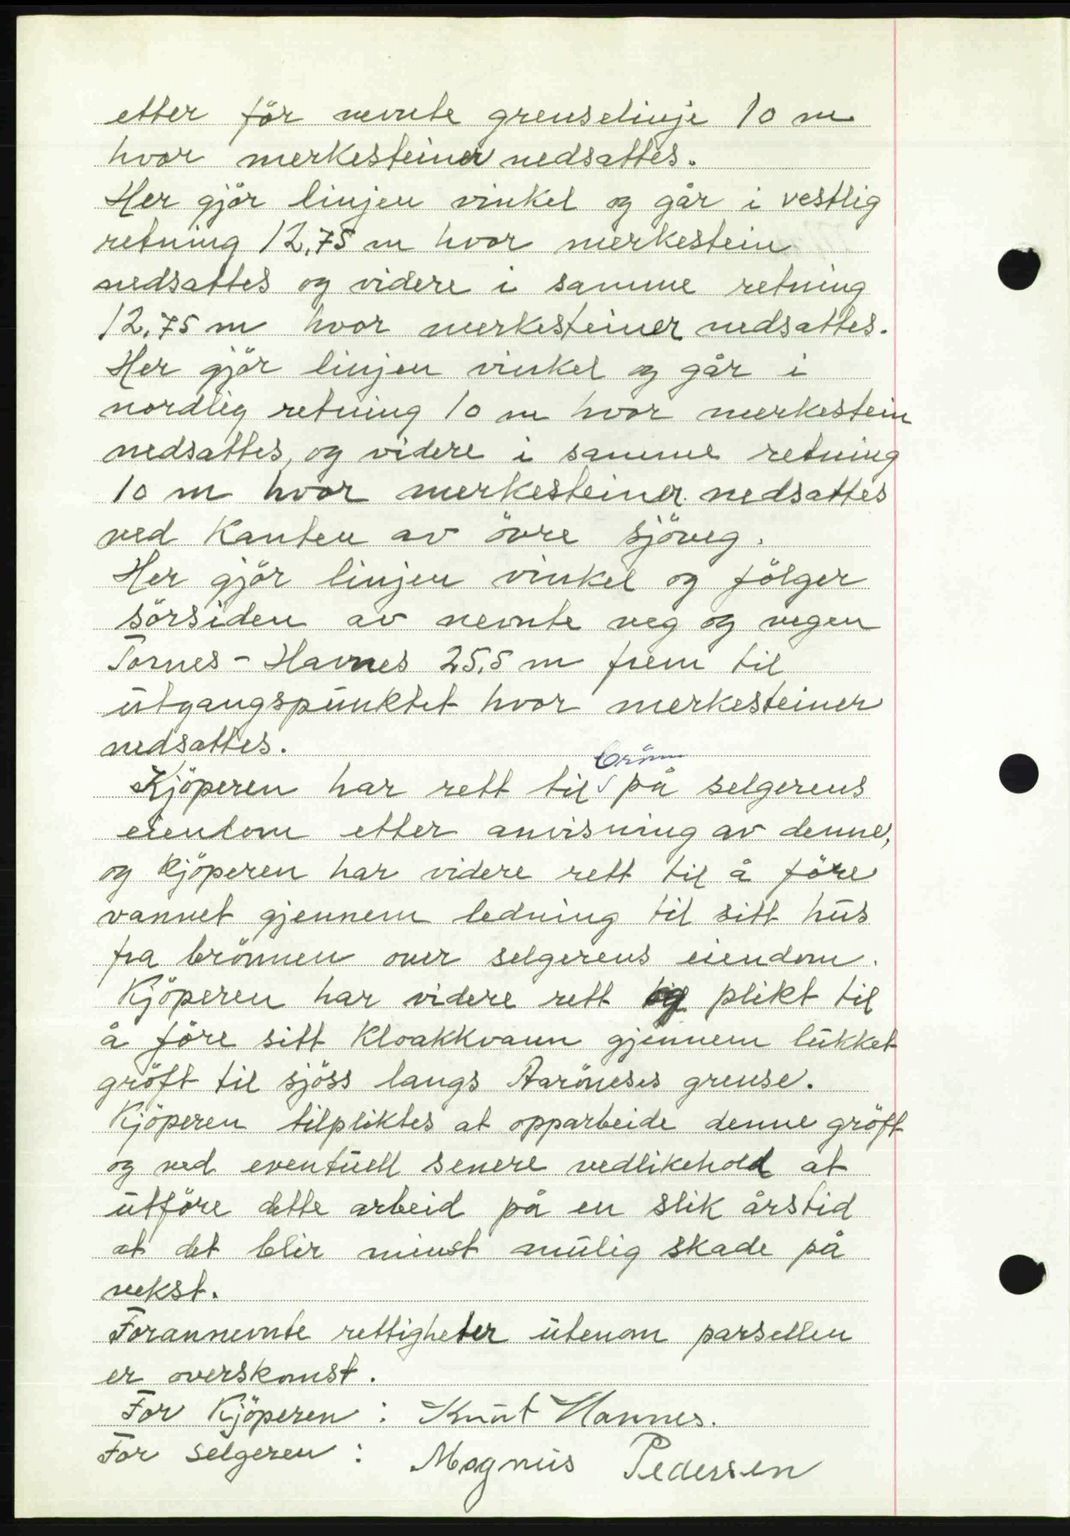 etterför nevnte grenselinje 10 m
hvor merkesteiner nedsattes.
Her gjör linjen vinkel og går i vestlig
retning 12,75 m hvor merkestein
nedsattes og videre i samme retning
12,75 m hvor merkesteiner nedsattes.
Her gjör linjen vinkel og går i
nordlig retning 10 m hvor merkestein
nedsattes, og videre i samme retning
10 m hvor merkesteiner nedsattes
ved Kanten av övre sjöveg.
Her gjör linjen vinkel og fölger
sörsiden av nevnte veg og vegen
Tornes - Havnes 25,5 m frem til
utgangspunktet hvor merkesteiner
nedsattes.
brönn
Kjöperen har rett til på selgerens
eiendom etter anvisning av denne,
og kjöperen har videre rett til å före
vannet gjennem ledning til sitt hus
fra brönnen over selgerens eiendom.
Kjöperen har videre rett og plikt til
å före sitt kloakkvann gjennem lukket
gröft til sjöss langs Aaröneses grense.
Kjöperen tilpliktes at opparbeide denne gröft
og ved eventuell senere vedlikehold at
utföre dette arbeid på en slik årstid
at det blir minst mulig skade på
vekst.
Forannevnte rettigheter utenom parsellen
er overskomst.
For Kjöperen : Knut Hannes.
For selgeren : Magnus Pedersen